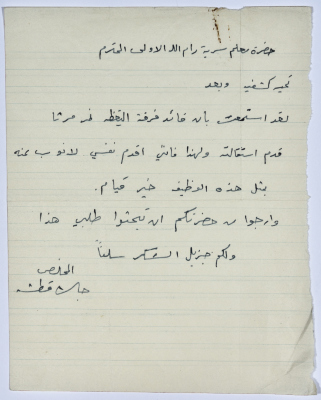 حضرة معلم سرية رام الله الاولى المحترم
تحية كشفية وبعد
لقد استمعت بان قائد فرقة اليقظة
قدم استقالته ولهذا فانني اقدم نفسي لانوب عنه
بمثل هذه الوظيفة خير قيام.
وارجوا من حضرتكم ان تبحثوا طلبي هذا
ولكم جزيل الشكر سلفاً
المخلص